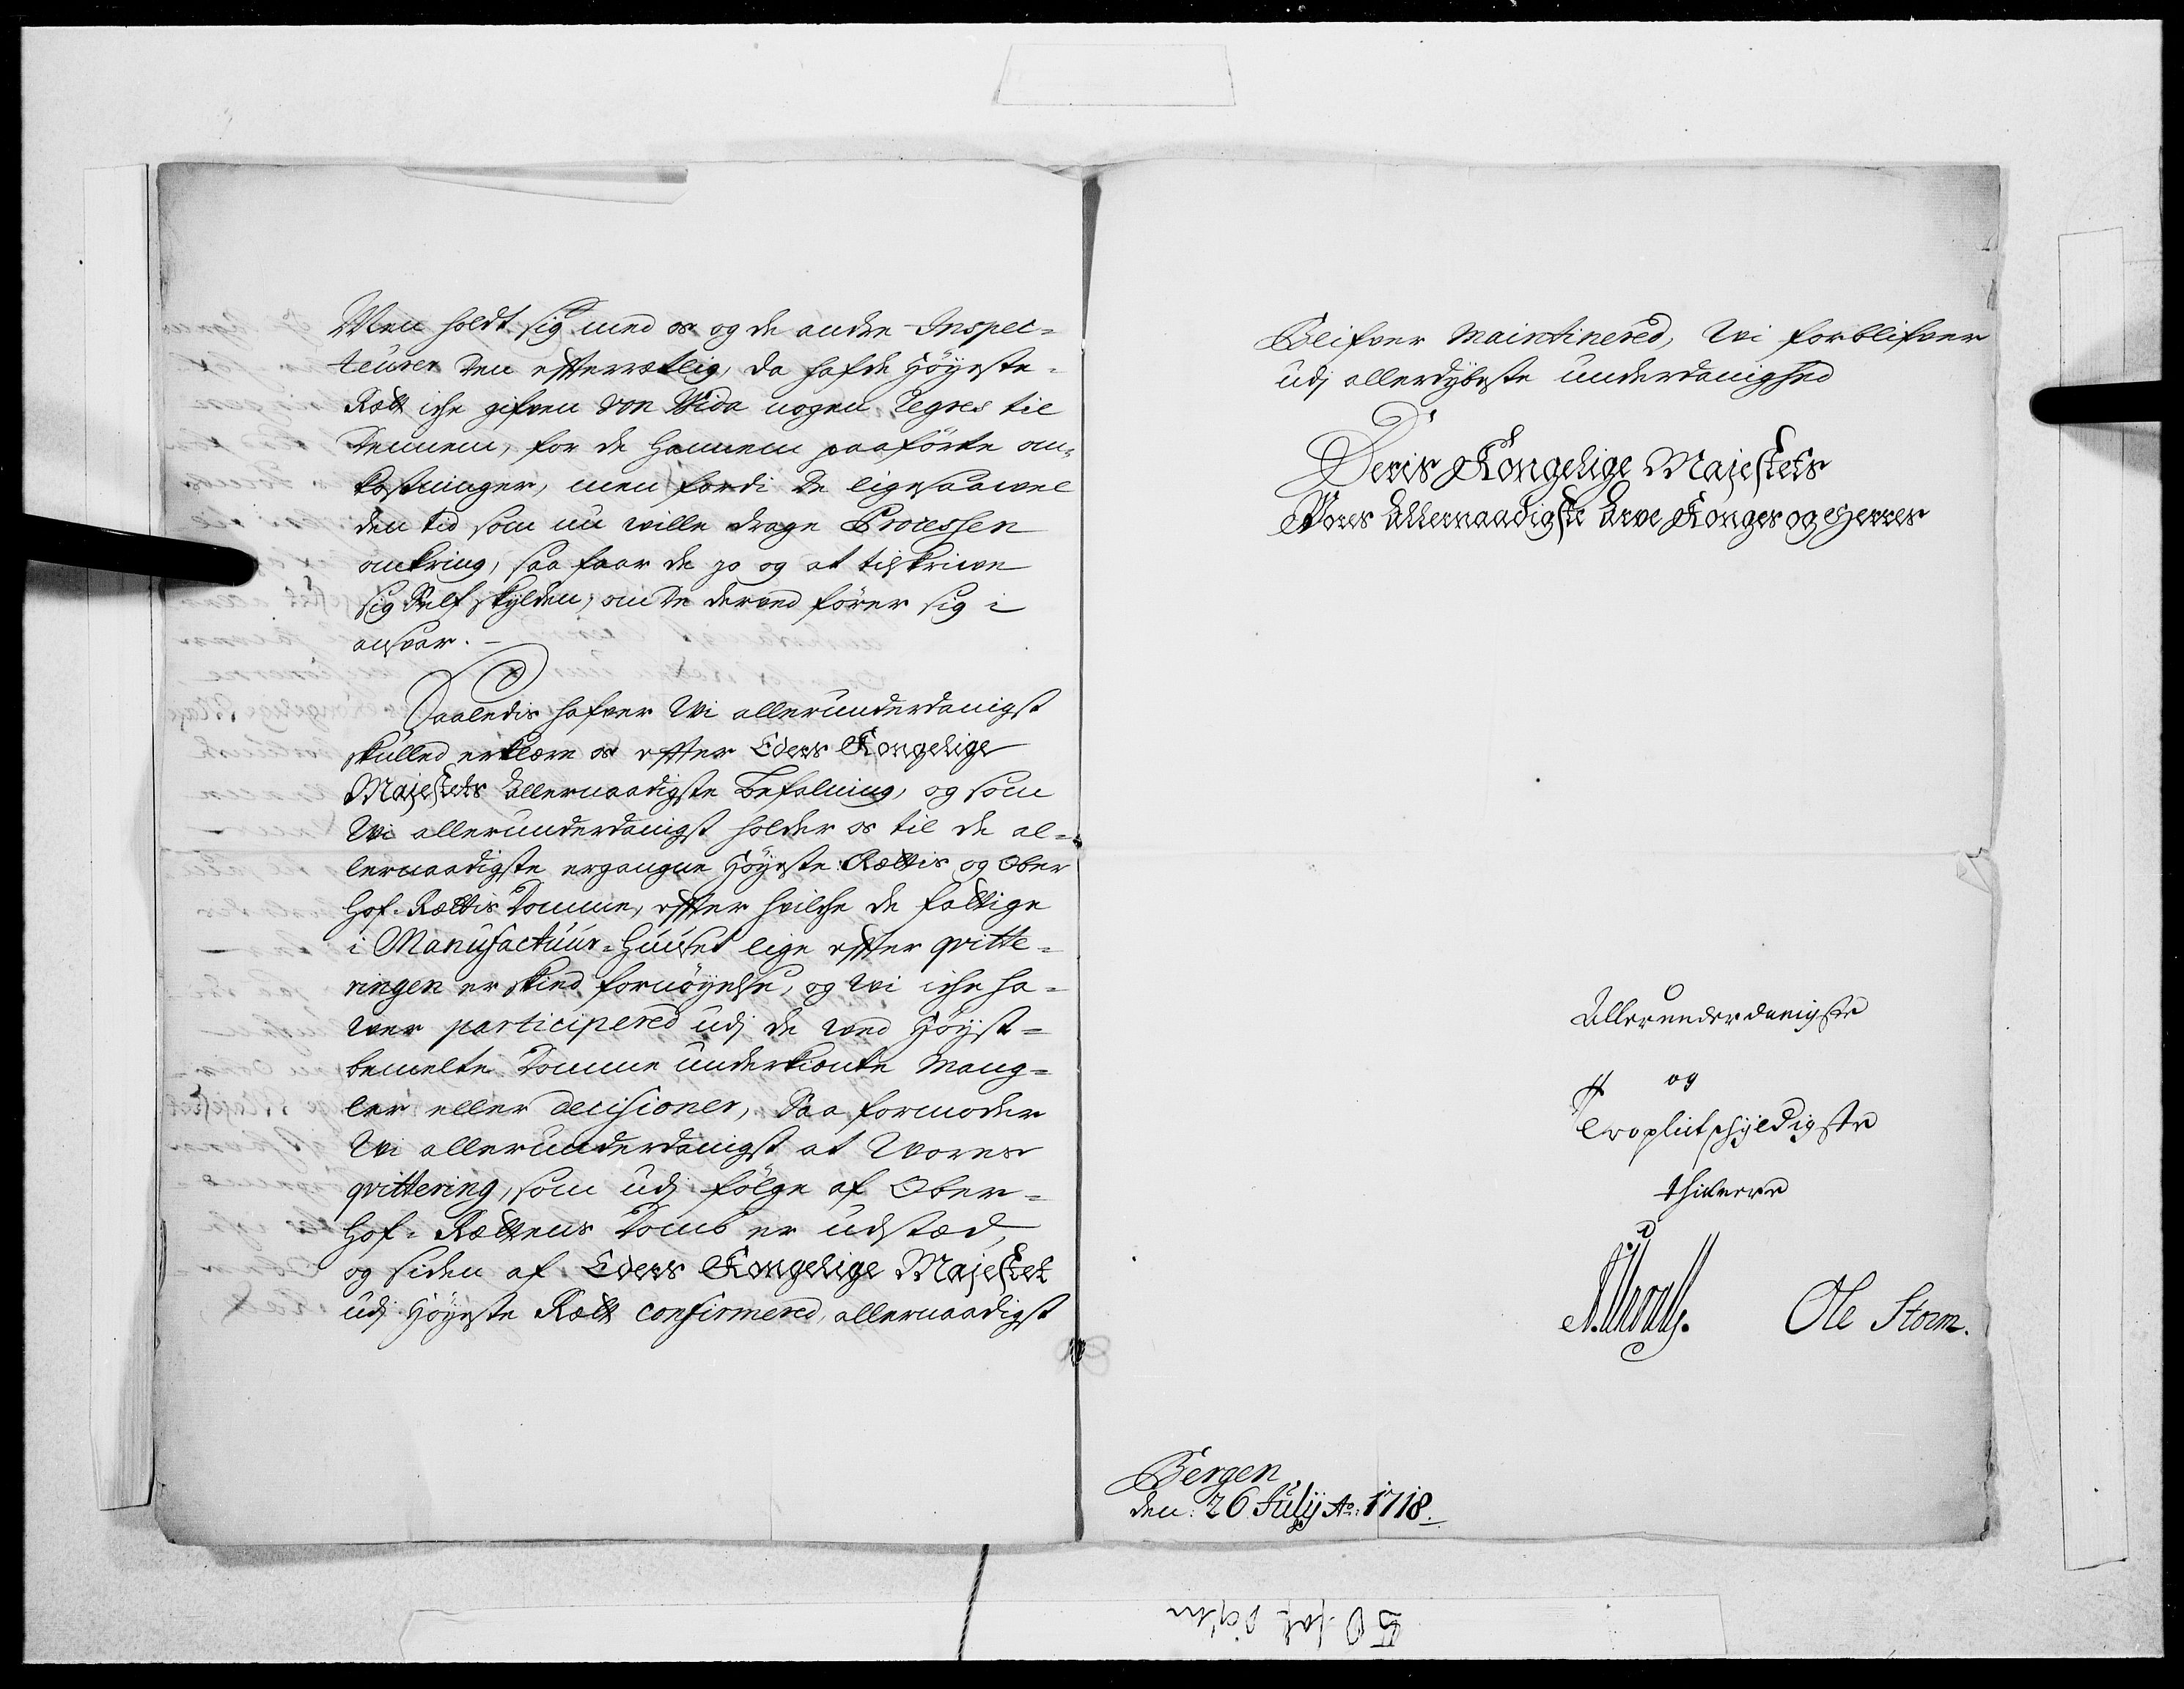 Men holdt sig med os og de andre Inspec=
teurer den efterretlig, da hafde Höyeste=
Rætt iche gifven von Wida nogen Regres til
dennem, for de hannem paaförte om,
kostninger, men fordi de ligesaavel
den tid som nu wille drage Processen
omkring, saa faar de jo og at tilskrive
sig Self skylden, om de derved förer sig i
ansvar. -
Saaledis hafver Wi allerunderdanigst
skulled erklære os efter Eders Kongelige
Majestets Allernaadigste Befalning, og som
Wi allerunderdanigst holder os til de al=
lernaadigste ergangne Höyeste Rættis og Ober
Hof-Rættis Domme, efter hvilche de fattige
i Manufactuur=Huuset lige efter qvitte=
ringen er skeed fornöyelse, og wi iche ha=
wer participered udj de wed Höyst=
bemelte Domme underkiente Mang=
ler eller decisioner, Saa formoder
Wi allerunderdanigst at Wores
qvittering, som udj fölge af Ober=
Hof-Rættens Domb er udstæd,
og siden af Eders Kongelige Majestet
udj Höyeste Rætt confirmered, allernaadigst
Blifver Maintinered, Wi forblifver
udj allerdybeste underdanighed
Deris Kongelige Majestets
Wores Allernaadigste Arve Konges og Herres
Allerunderdanigste
og
troplictschyldigste
thienere
Ole Storm.
Bergen
den: 26 Julij Ao: 1718.